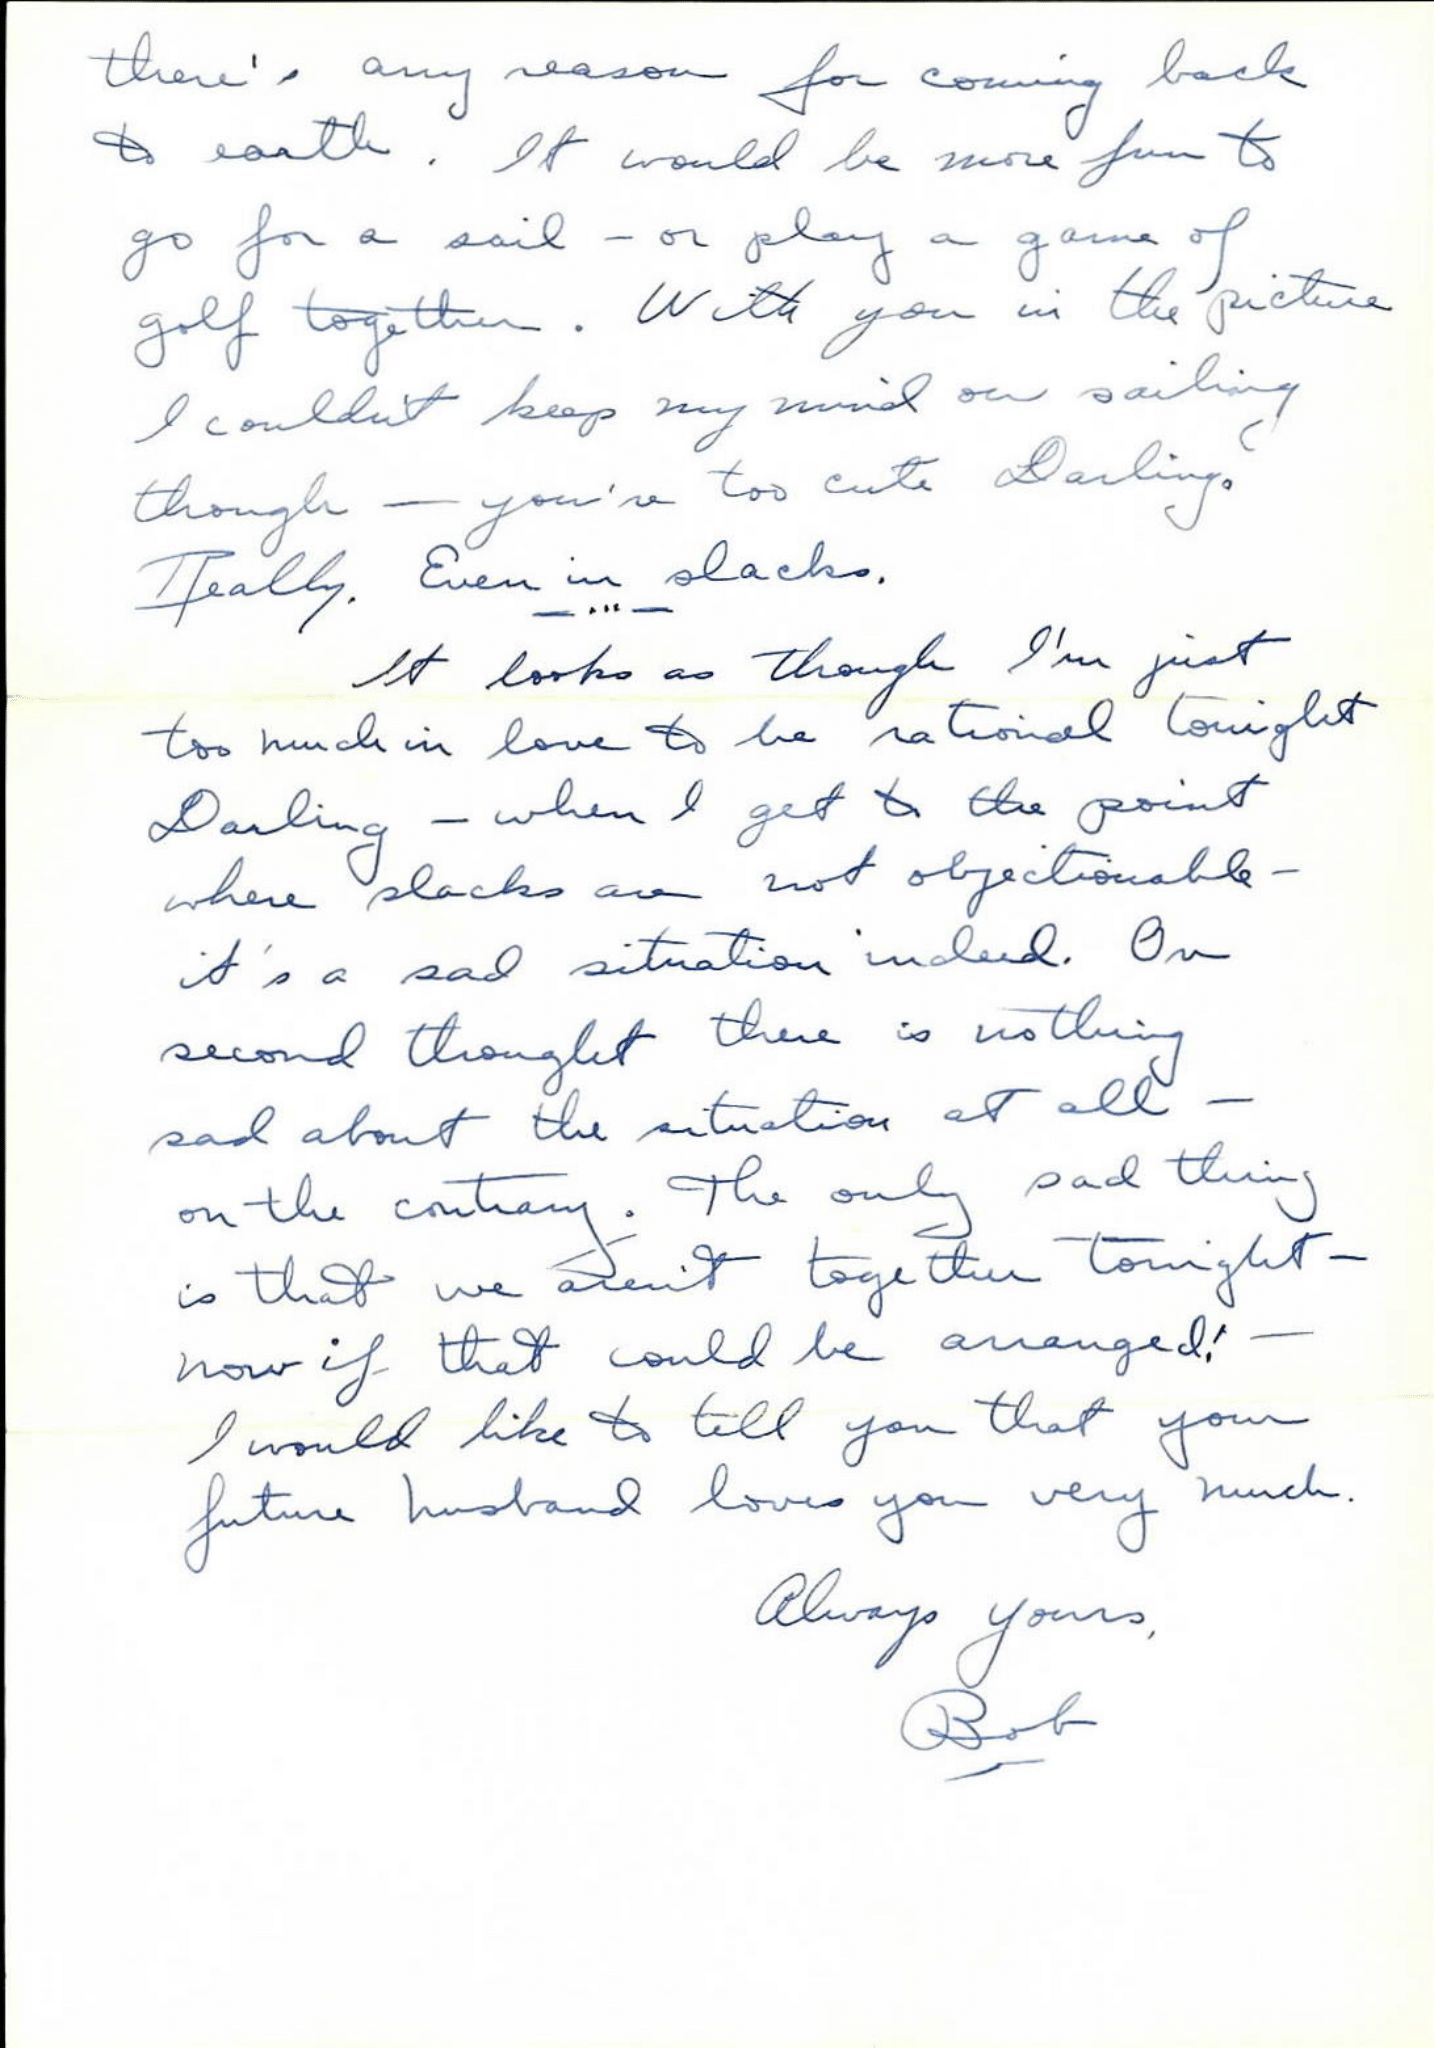 there's any reason for coming back
to earth. It would be more fun to
go for a sail – or play a game of
golf together. With you in the picture
I couldn't keep my mind on sailing
though — you're too cute Darling.
Really. Even in slacks.
It looks as though I'm just
too much in love to be rational tonight
Darling – when I get to the point
where slacks are not objectionable –
it's a sad situation indeed. On
second thought there is nothing
sad about the situation at all –
on the contrary. The only sad thing
is that we aren't together tonight –
now if that could be arranged! –
I would like to tell you that your
future husband loves you very much.
Always yours,
Bob